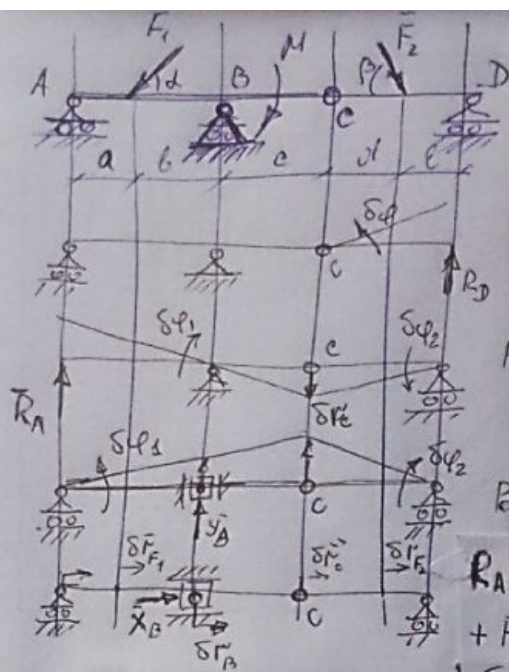 F₁ M F̄₂
A α B β D
C
a b c d e
δφ
C R_D
δφ₁ C δφ₂
R̄_A δr̄_C
δφ₁ δφ₂
C
ȳ_B
δr̄_F₁ δr̄_C δr̄_F₂
R_A
X̄_B C
δr̄_B
+ F